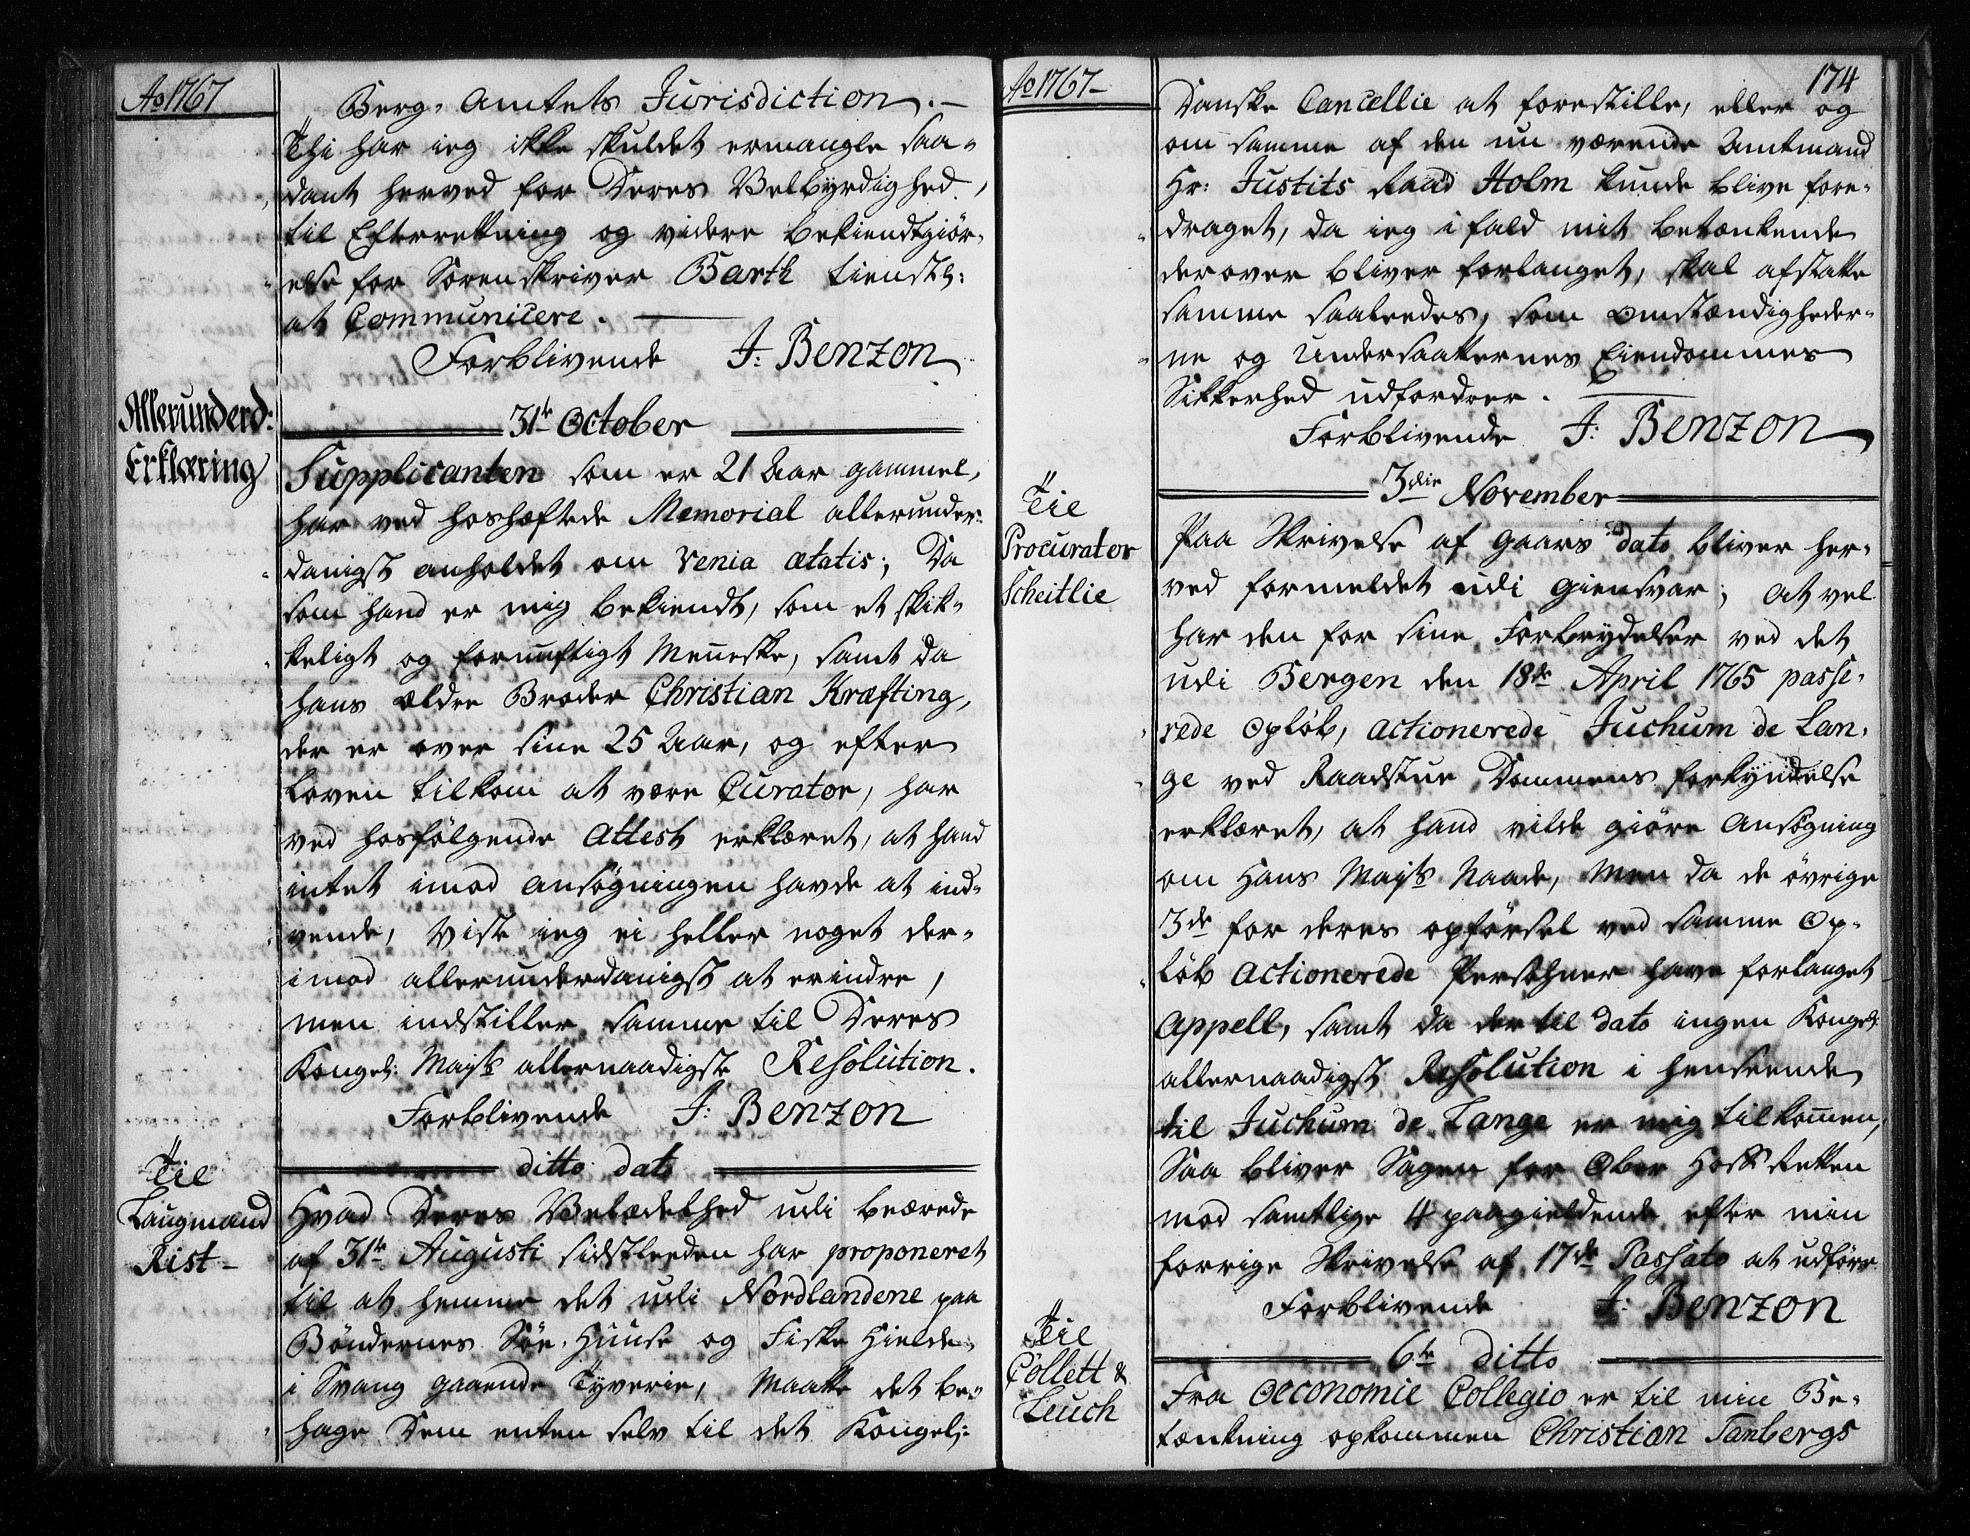 Ao 1767
Berg-Amtets Jurisdiction.
Thi har ieg ikke skuldet ermangle saa-
dant herved for Deres Velbyrdighed
til Efterretning og videre bekiendtgiør-
else for Sorenskriver Barth tienstl:
at Communicere.
Forblivende J: Benzon
31te October
Allerunderd:
Erklæring
Supplicanten som er 21 Aar gammel,
har ved hoshæftede Memorial allerunder-
danigst anholdet om venia ætatis; Da
som hand er mig bekiendt, som et skik-
keligt og fornuftigt Menneske, samt da
hans ældre Broder Christian Kræfting,
der er over sine 25 Aar, og efter
Loven tilkom at være Curator, har
ved hosfölgende Attest erklæret, at hand
intet imod Ansögningen havde at ind-
vende, Viste ieg ei heller noget der-
imod allerunderdanigst at erindre,
men indstiller samme til Deres
Kongel: Mayts allernaadigste Resolution.
Forblivende J: Benzon
ditto dato
Til
Laugmand
Rist
Hvad Deres Velædelhed udi beærede
af 31te Augusti sidstleeden har proponeret
til at hemme det udi Nordlandene paa
Böndernes Söe-Huuse og Fiske Hielde
i Svang gaaende Tyverie, Maatte det be-
hage Dem enten selv til det Kongel:
Ao 1767
174
Danske Cancellie at forestille, eller og
om samme af den nu værende Amtmand
Hr: Justits Raad Holm kunde blive fore-
draget, da ieg i fald mit betænkende
derover bliver forlanget, skal afstatte
samme saaledes, som Omstændigheder-
ne og Undersaatternes Eiendommes
Sikkerhed udfordrer.
Forblivende J: Benzon
3die November
Til
Procurator
Scheitlie
Paa Skrivelse af Gaars dato bliver her-
ved formeldet udi Giensvar; At vel
har den for sine Forbrydelser ved det
udi Bergen den 18de April 1765 passe-
rede Opløb, actionerede Juchum de Lan-
ge ved Raadstue Dommens forkyndelse
erklæret, at hand vilde giöre Ansögning
om Hans Mayts Naade, Men da de övrige
3de for deres opförsel ved samme Op-
löb Actionerede Persohner have forlanget
Appell, samt da der til dato ingen Kongel:
allernaadigst Resolution i henseende
til Juchum de Lange er mig tilkommen,
Saa bliver Sagen for Ober Hoff Retten
mod samtlige 4 paagieldende efter min
forrige Skrivelse af 17de Passato at udföre
Forblivende J: Benzon
6te ditto
Til
Collett &
Leuch
Fra Oeconomie Collegio er til min Be-
tænkning opkommen Christian Tanbergs